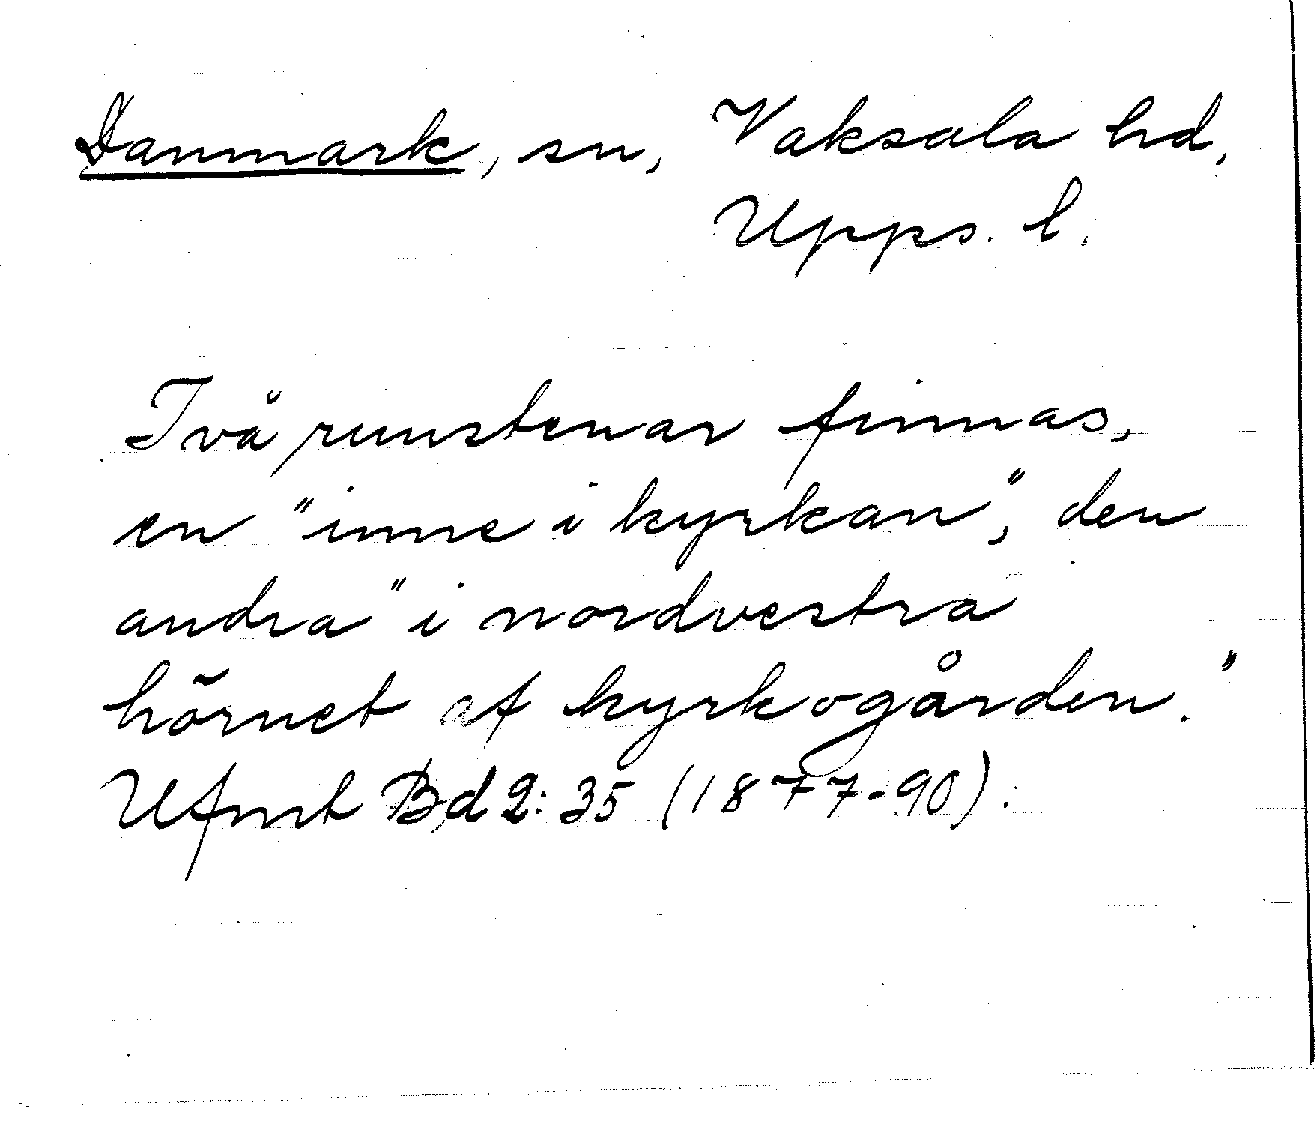 Danmark, sn, Vaksala hd,
Upps. l.
Två runstenar finnas,
en "inne i kyrkan", den
andra "i nordvestra
hörnet af kyrkogården."
Ufmt Bd 2:35 (1877-90).